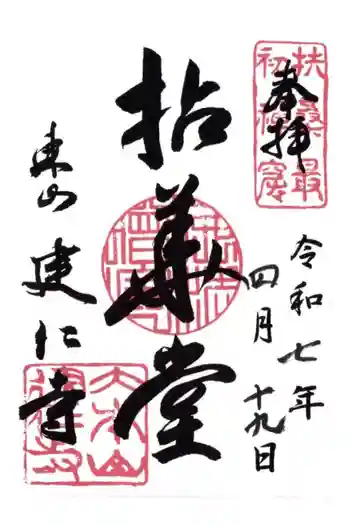 奉拝
扶桑最
初禅窟
令和七年
四月十九日
拈華堂
東山
建仁寺